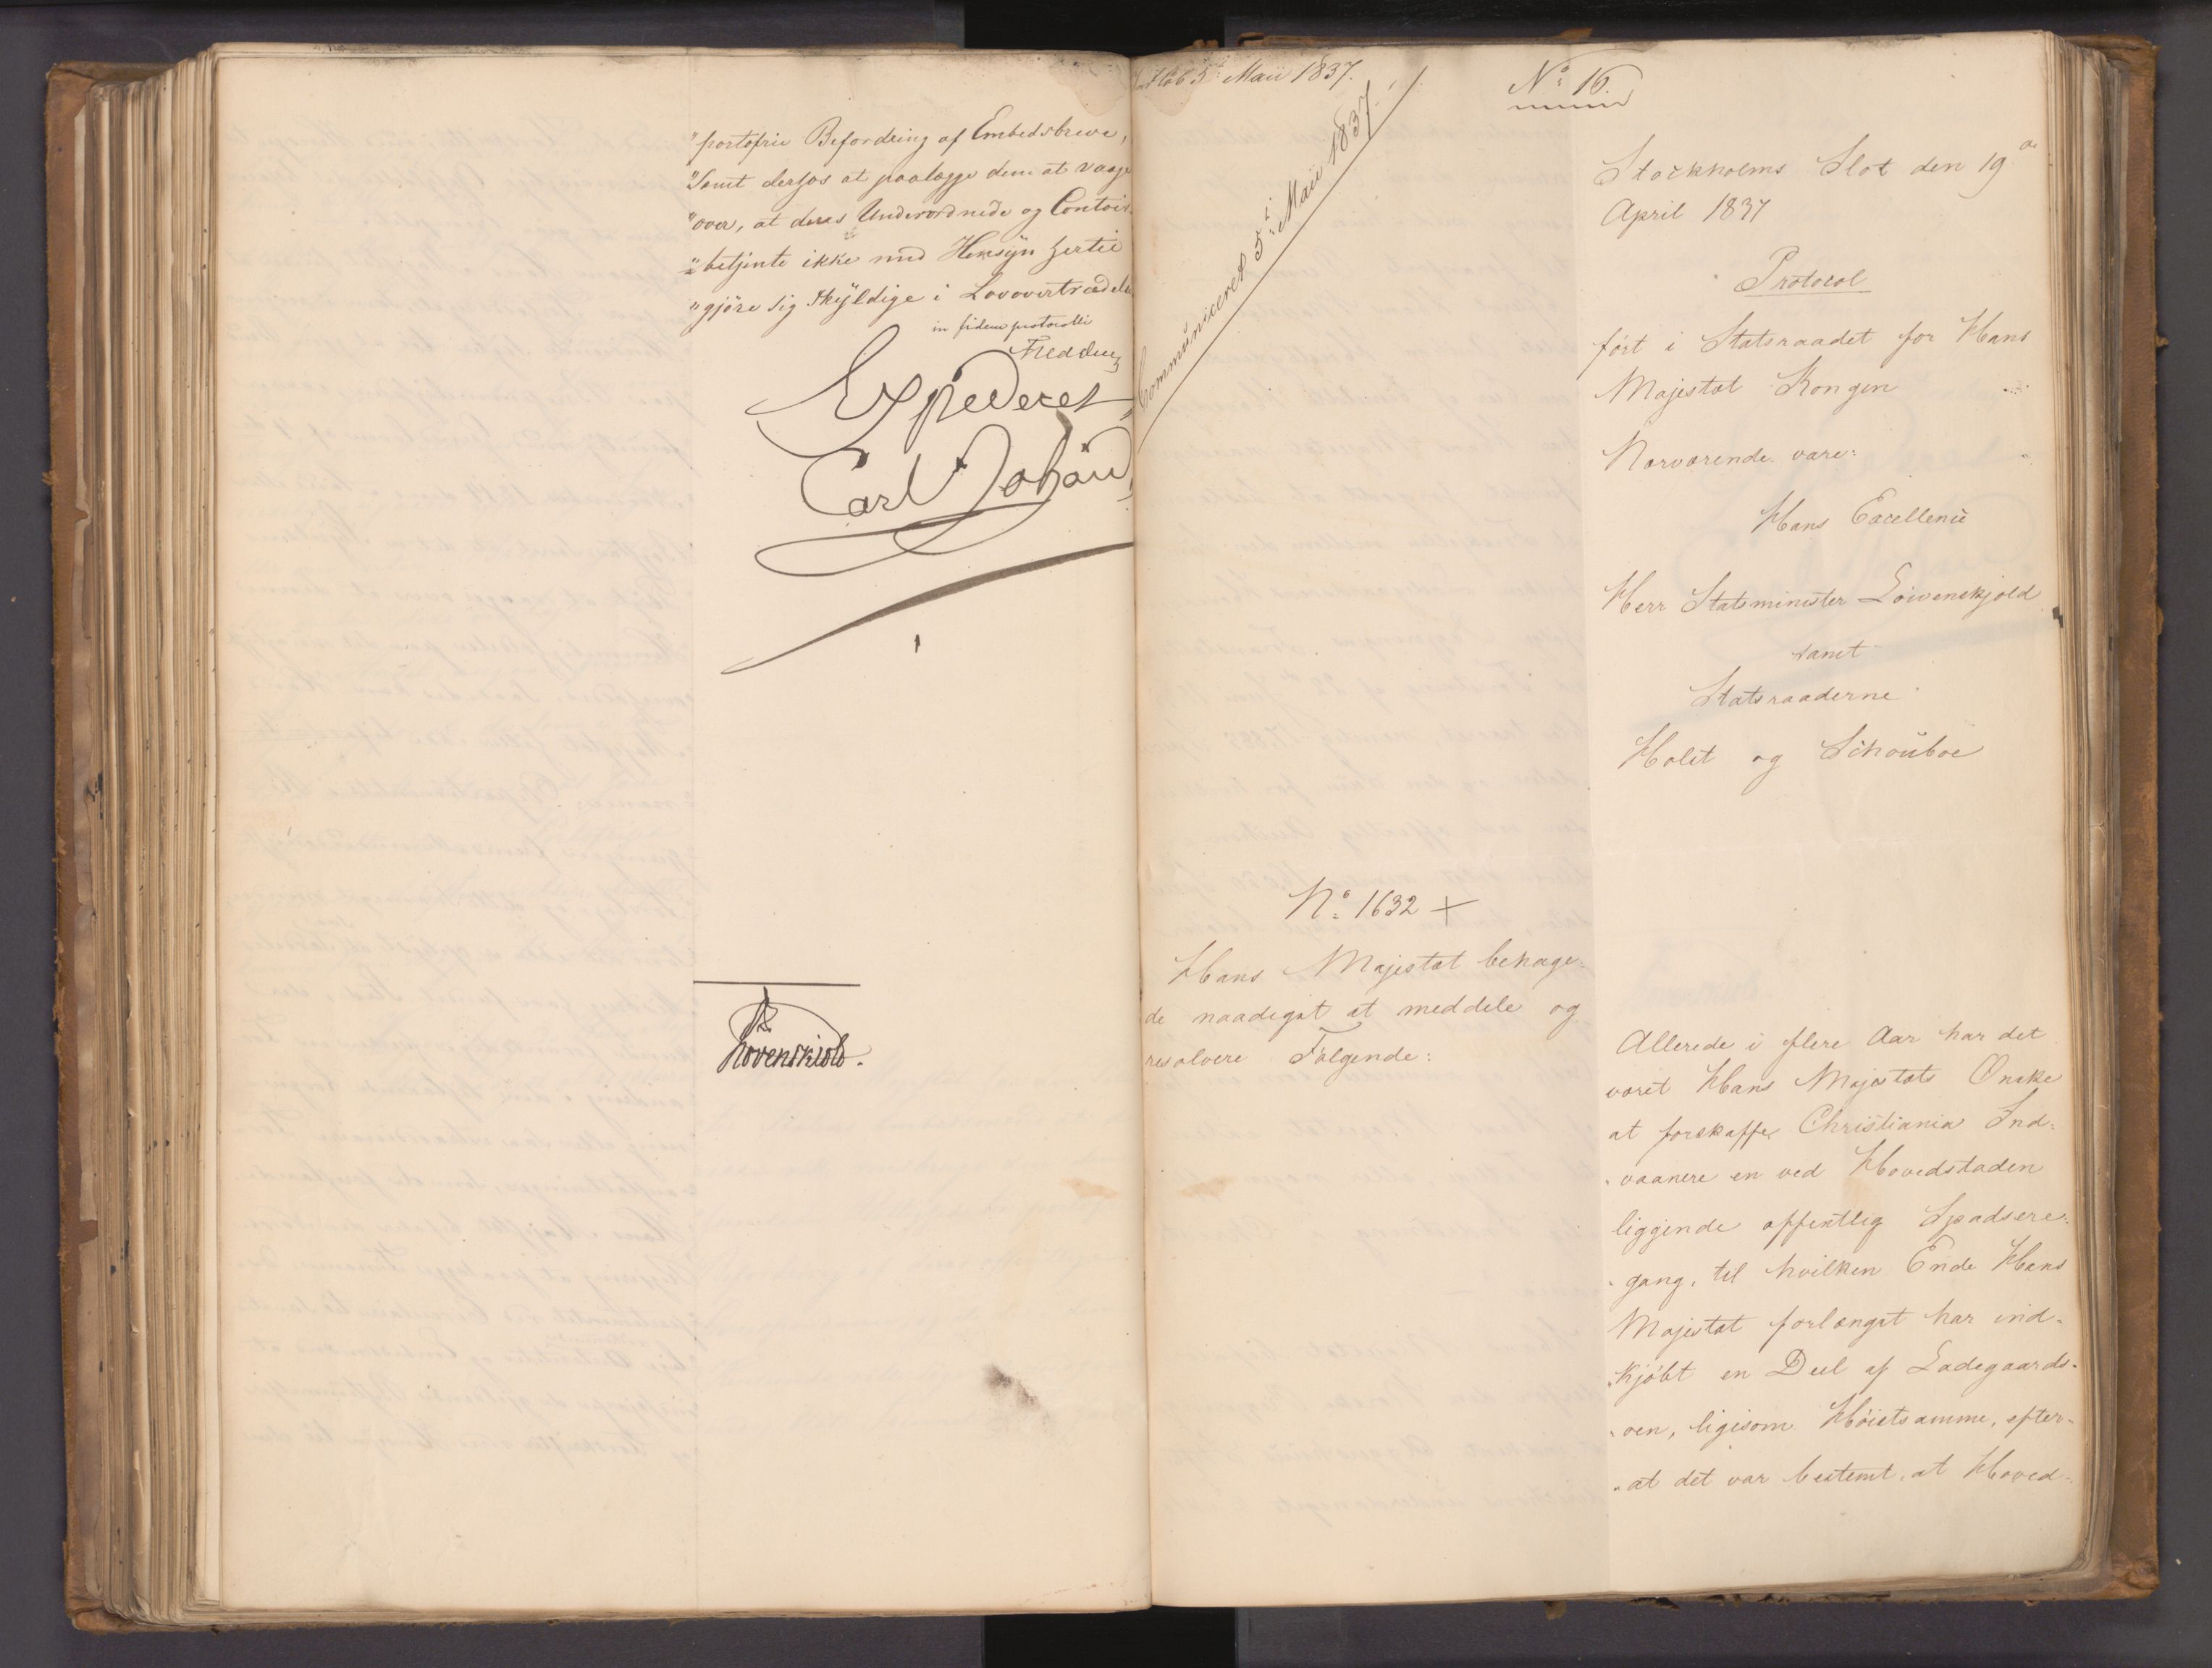 "portofrie Befordring af Embedsbreve,
"samt derhos at paalægge dem at vaage
"over, at deres Underordnede og Contoir-
"betjente ikke med Hensyn hertil
"gjöre sig skyldige i Lovovertrædelse
in fidem protocolli
Expederes
Carl Johan
Løvenskiold.
5t Maii 1837.
Communiceret 5t Maii 1837.
No 16.
Stockholms Slot den 19de
April 1837
Protocol
fört i Statsraadet for Hans
Majestæt Kongen
Nærværende vare:
Hans Excellence
Herr Statsminister Löwenskjold
samt
Statsraaderne
Holst og Schouboe
No 1632 +
Hans Majestæt behage-
de naadigst at meddele og
resolvere Følgende:
Allerede i flere Aar har det
været Hans Majestæts Önske
at forskaffe Christiania Ind-
vaanere en ved Hovedstaden
liggende offentlig Spadsere-
gang, til hvilken Ende Hans
Majestæt forlængst har ind-
kjöbt en Deel af Ladegaards-
öen, ligesom Höistsamme, efter-
at det var bestemt, at Hoved-